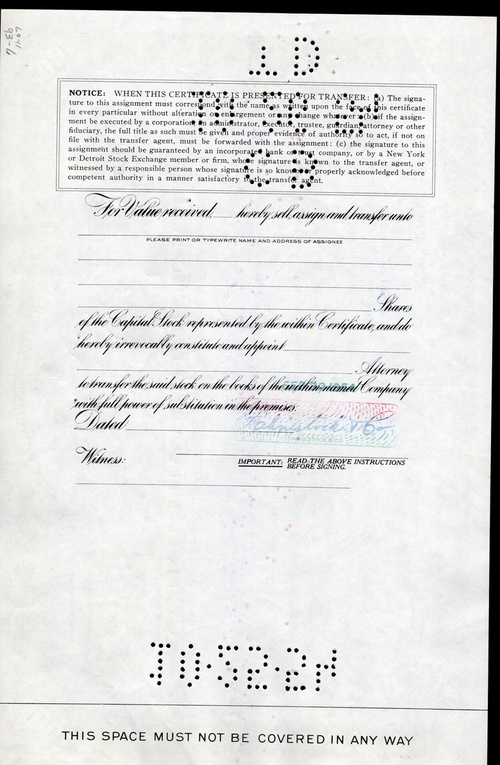 NOTICE: WHEN THIS CERTIFICATE IS PRESENTED FOR TRANSFER: (a) The signa-
ture to this assignment must correspond with the name as written upon the face of this certificate
in every particular without alteration or enlargement or any change whatever: (b) if the assign-
ment be executed by a corporation, an administrator, executor, trustee, guardian, attorney or other
fiduciary, the full title as such must be given and proper evidence of authority so to act, if not on
file with the transfer agent, must be forwarded with the assignment: (c) the signature to this
assignment should be guaranteed by an incorporated bank or trust company, or by a New York
or Detroit Stock Exchange member or firm, whose signature is known to the transfer agent, or
witnessed by a responsible person whose signature is so known or properly acknowledged before
competent authority in a manner satisfactory to the transfer agent.
For Value received, hereby sell, assign and transfer unto
PLEASE PRINT OR TYPEWRITE NAME AND ADDRESS OF ASSIGNEE
Shares
of the Capital Stock represented by the within Certificate, and do
hereby irrevocably constitute and appoint
Attorney
to transfer the said stock on the books of the within named Company
with full power of substitution in the premises.
Dated
Witness:
IMPORTANT: READ THE ABOVE INSTRUCTIONS
BEFORE SIGNING.
THIS SPACE MUST NOT BE COVERED IN ANY WAY